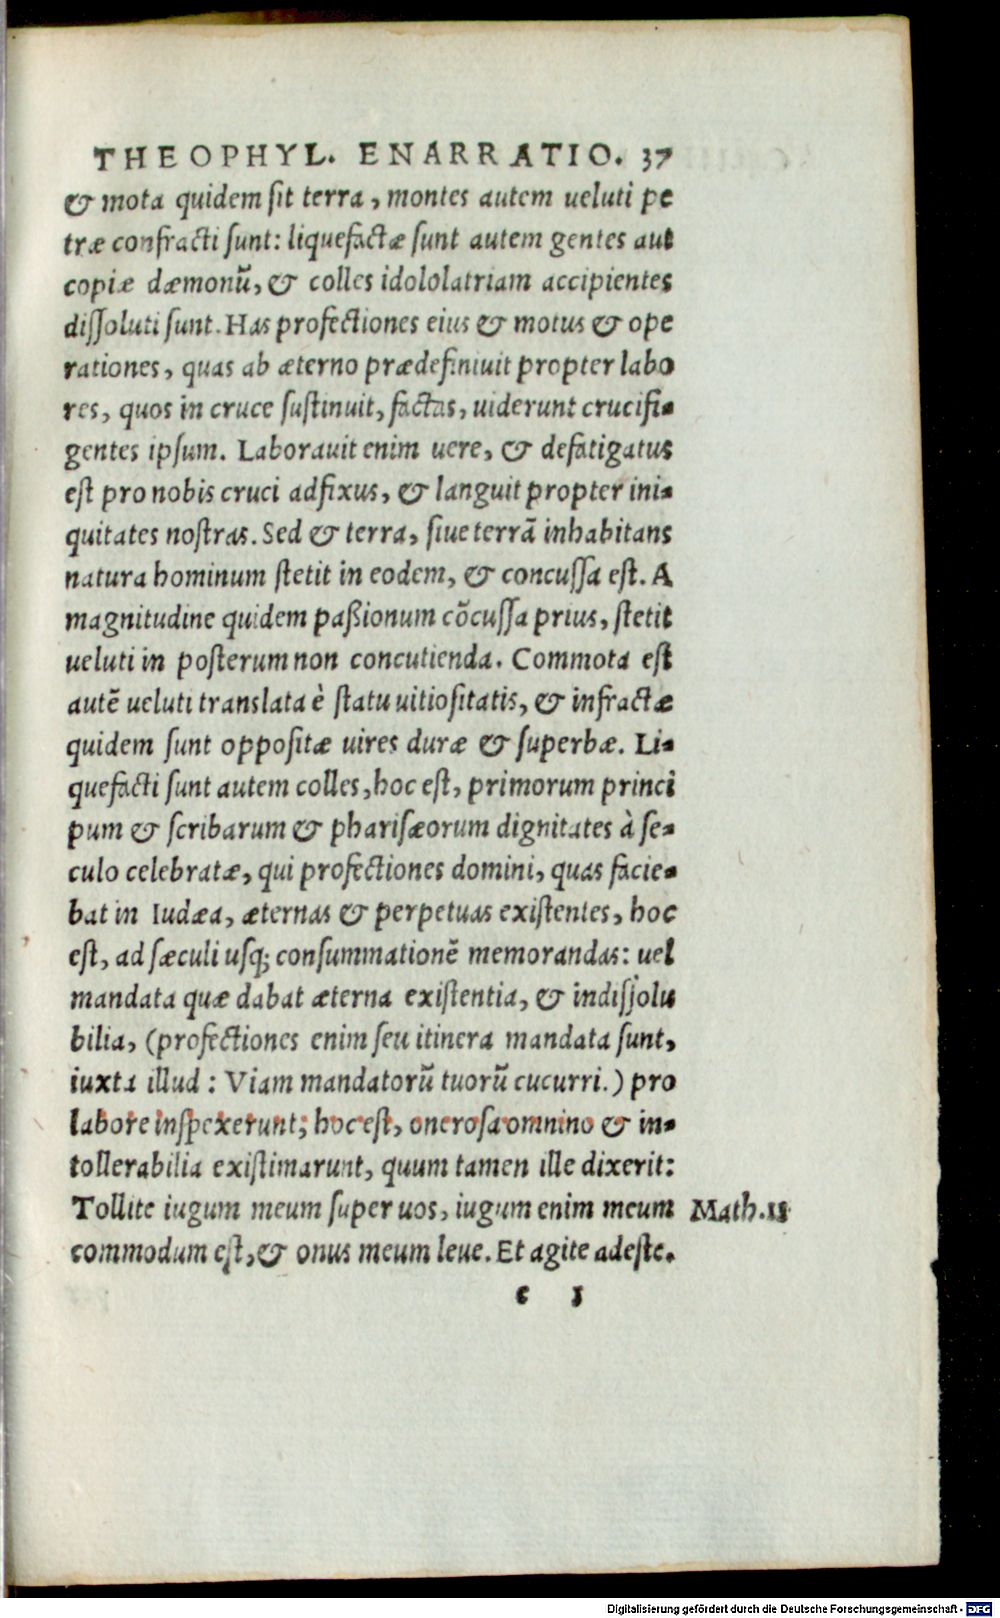 THEOPHYL. ENARRATIO. 37
& mota quidem sit terra, montes autem ueluti pe
træ confracti sunt: liquefactæ sunt autem gentes aut
copiæ dæmonũ, & colles idololatriam accipientes
dissoluti sunt. Has profectiones eius & motus & ope
rationes, quas ab æterno prædefiniuit propter labo
res, quos in cruce sustinuit, factas, uiderunt crucifi-
gentes ipsum. Laborauit enim uere, & defatigatus
est pro nobis cruci adfixus, & languit propter ini-
quitates nostras. Sed & terra, siue terrã inhabitans
natura hominum stetit in eodem, & concussa est. A
magnitudine quidem paßionum cõcussa prius, stetit
ueluti in posterum non concutienda. Commota est
autẽ ueluti translata è statu uitiositatis, & infractæ
quidem sunt oppositæ uires duræ & superbæ. Li-
quefacti sunt autem colles, hoc est, primorum princi
pum & scribarum & pharisæorum dignitates à se-
culo celebratæ, qui profectiones domini, quas facie-
bat in Iudæa, æternas & perpetuas existentes, hoc
est, ad sæculi usq; consummationẽ memorandas: uel
mandata quæ dabat æterna existentia, & indissolu
bilia, (profectiones enim seu itinera mandata sunt,
iuxta illud: Viam mandatorũ tuorũ cucurri.) pro
labore inspexerunt; hoc est, onerosa omnino & in-
tollerabilia existimarunt, quum tamen ille dixerit:
Tollite iugum meum super uos, iugum enim meum Math.11
commodum est, & onus meum leue. Et agite adeste.
c 5
Digitalisierung gefördert durch die Deutsche Forschungsgemeinschaft - DFG